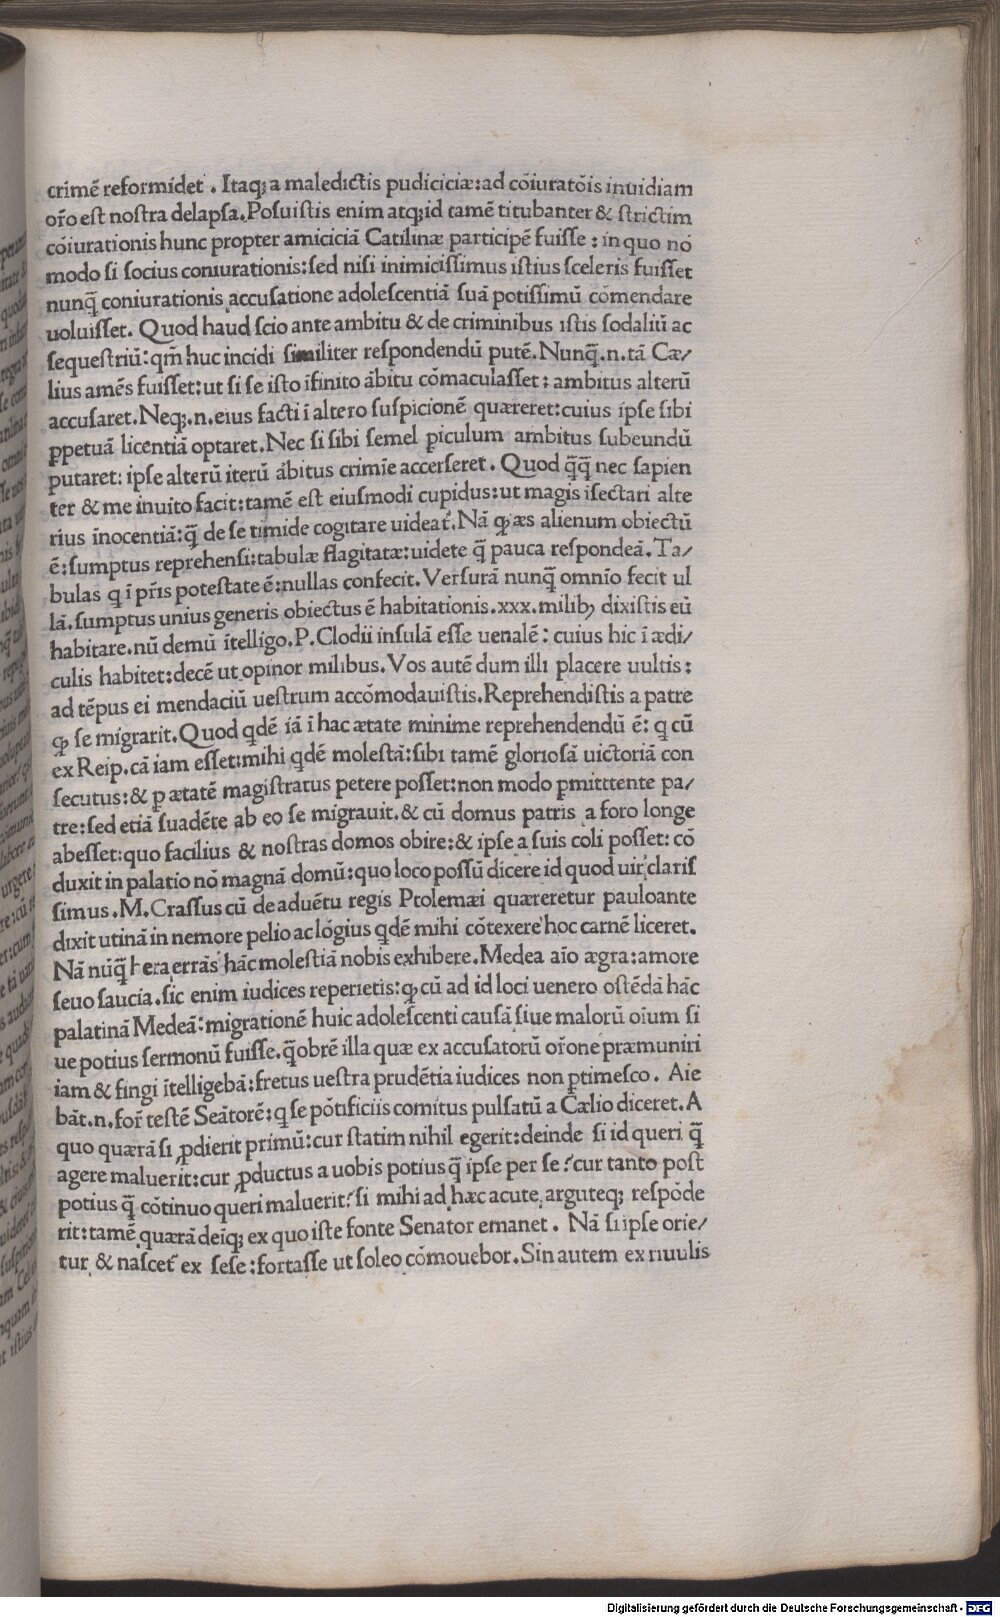 crimē reformidet . Itaq; a maledictis pudiciciæ: ad cōiuratōis inuidiam
oŕo est nostra delapsa. Posuistis enim atq; id tamē titubanter & strictim
cōiurationis hunc propter amiciciā Catilinæ participē fuisse : in quo nō
modo si socius coniurationis: sed nisi inimicissimus istius sceleris fuisset
nunq̄ coniurationis accusatione adolescentiā suā potissimū cōmendare
uoluisset. Quod haud scio ante ambitu & de criminibus istis sodaliū ac
sequestriū: qm̄ huc incidi similiter respondendū putē. Nunq̄.n. tā Cæ/
lius amēs fuisset: ut si se isto īfinito ābitu cōmaculasset : ambitus alterū
accusaret. Neq;.n. eius facti ī altero suspicionē quæreret: cuius ipse sibi
ꝑpetuā licentiā optaret. Nec si sibi semel piculum ambitus subeundū
putaret: ipse alterū iterū ābitus crimīe accerseret . Quod q̄q̄ nec sapien
ter & me inuito facit: tamē est eiusmodi cupidus: ut magis īsectari alte
rius īnocentiā: q̄ de se timide cogitare uideat᷑. Nā ꝙ æs alienum obiectū
ē: sumptus reprehensi: tabulæ flagitatæ: uidete q̄ pauca respondeā. Ta/
bulas q ī pr̄is potestate ē: nullas confecit. Versurā nunq̄ omnīo fecit ul
lā. sumptus unius generis obiectus ē habitationis. xxx. milibꝫ dixistis eū
habitare. nū demū ītelligo. P. Clodii insulā esse uenalē : cuius hic ī ædi/
culis habitet: decē ut opinor milibus. Vos autē dum illi placere uultis :
ad tēpus ei mendaciū uestrum accōmodauistis. Reprehendistis a patre
ꝙ se migrarit. Quod qdē iā ī hac ætate minime reprehendendū ē: q cū
ex Reip. cā iam esset: mihi qdē molestā: sibi tamē gloriosā uictoriā con
secutus: & p ætatē magistratus petere posset: non modo pmitttente pa/
tre: sed etiā suadēte ab eo se migrauit. & cū domus patris a foro longe
abesset: quo facilius & nostras domos obire: & ipse a suis coli posset: cō
duxit in palatio nō magnā domū: quo loco possū dicere id quod uir claris
simus . M. Crassus cū de aduētu regis Ptolemæi quæreretur pauloante
dixit utinā in nemore pelio ac lōgius qdē mihi cōtexere hoc carnē liceret.
Nā nūq̄ hera errās hāc molestiā nobis exhibere. Medea aīo ægra: amore
seuo saucia. sic enim iudices reperietis: ꝙ cū ad id loci uenero ostēdā hāc
palatinā Medeā: migrationē huic adolescenti causā siue malorū oium si
ue potius sermonū fuisse. q̄obrē illa quæ ex accusatorū or̄one præmuniri
iam & fingi ītelligebā: fretus uestra prudētia iudices non ptimesco . Aie
bāt. n. for̄ testē Seātorē: q se pōtificiis comitus pulsatū a Cælio diceret. A
quo quærā si ꝓdierit primū: cur statim nihil egerit: deinde si id queri q̄
agere maluerit: cur ꝓductus a uobis potius q̄ ipse per se ? cur tanto post
potius q̄ cōtinuo queri maluerit ? si mihi ad hæc acute, arguteq; respōde
rit: tamē quærā deīq; ex quo iste fonte Senator emanet . Nā si ipse orie/
tur & nascet᷑ ex sese : fortasse ut soleo cōmouebor. Sin autem ex riuulis
Digitalisierung gefördert durch die Deutsche Forschungsgemeinschaft - DFG